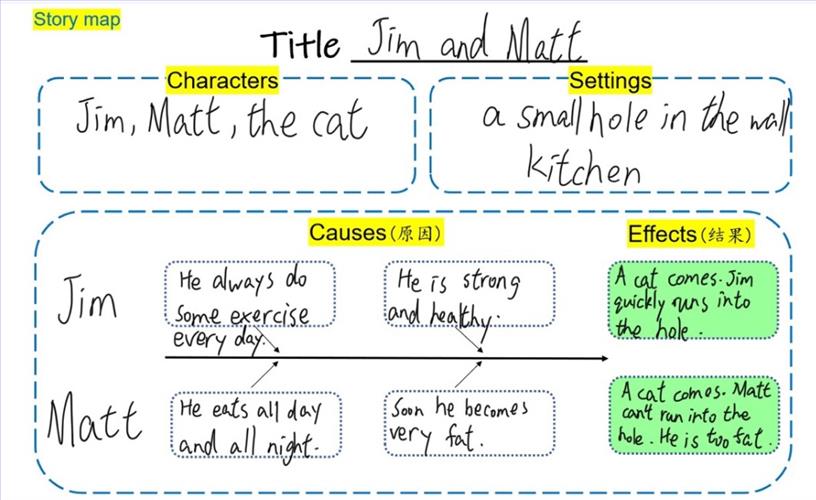 Story map
Title Jim and Matt
Characters
Jim, Matt, the cat
Settings
a small hole in the wall
kitchen
Causes(原因)
Effects(结果)
Jim
He always do
some exercise
every day.
He is strong
and healthy.
A cat comes. Jim
quickly runs into
the hole.
Matt
He eats all day
and all night.
Soon he becomes
very fat.
A cat comes. Matt
can't run into the
hole. He is too fat.